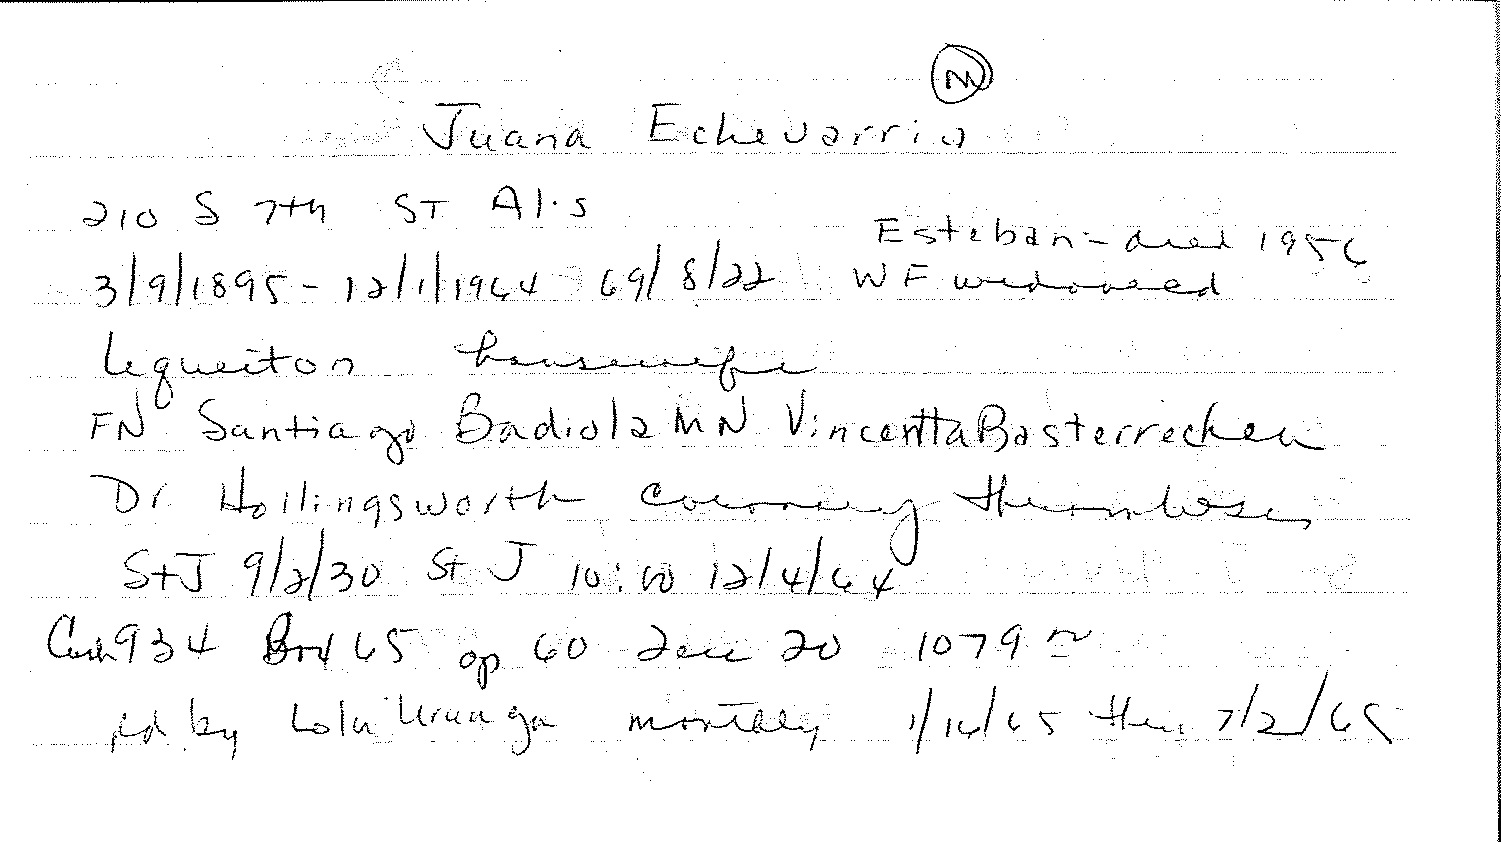 M
Juana Echevarria
210 S 7th ST Al.s
Esteban - died 1956
3/9/1895 - 12/1/1964 69/8/22 WF widowed
lequeiton housewife
FN Santiago Badiola MN Vincentta Basterrechea
Dr Hollingsworth coronary thrombosis
StJ 9/2/30 St J 10:00 12/4/64
Cash 934 Box 65 op 60 20 1079
pd by Lola Uranga monthly 1/16/65 thru 7/2/65